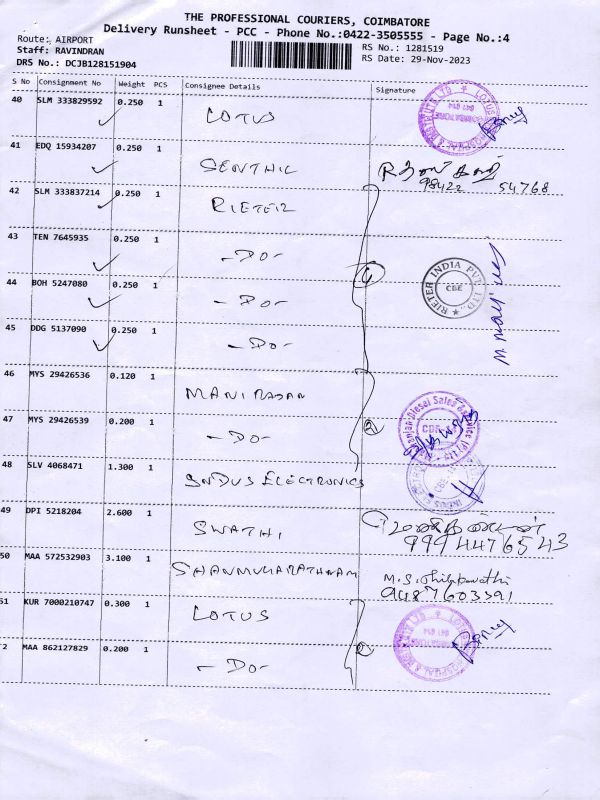 THE PROFESSIONAL COURIERS, COIMBATORE
Delivery Runsheet - PCC - Phone No.:0422-3505555 - Page No.:4
Route: AIRPORT
RS No.: 1281519
Staff: RAVINDRAN
RS Date: 29-Nov-2023
DRS No.: DCJB128151904
S No Consignment No Weight PCS Consignee Details Signature
40 SLM 333829592 0.250 1 LOTUS
41 EDQ 15934207 0.250 1 SENTHIL
98422 54768
42 SLM 333837214 0.250 1 RIETER
43 TEN 7645935 0.250 1 -DO-
44 BOH 5247080 0.250 1 -DO-
4
RIETER INDIA PVT. LTD.,
CBE
45 DDG 5137090 0.250 1 -DO-
46 MYS 29426536 0.120 1 MANI RAJAN
47 MYS 29426539 0.200 1 -DO-
2
48 SLV 4068471 1.300 1 INDUS ELECTRONICS
49 DPI 5218204 2.600 1 SWATHI
9994476543
50 MAA 572532903 3.100 1 SHANMUGARATHNAM
9487603391
51 KUR 7000210747 0.300 1 LOTUS
2 MAA 862127829 0.200 1 -DO-
2